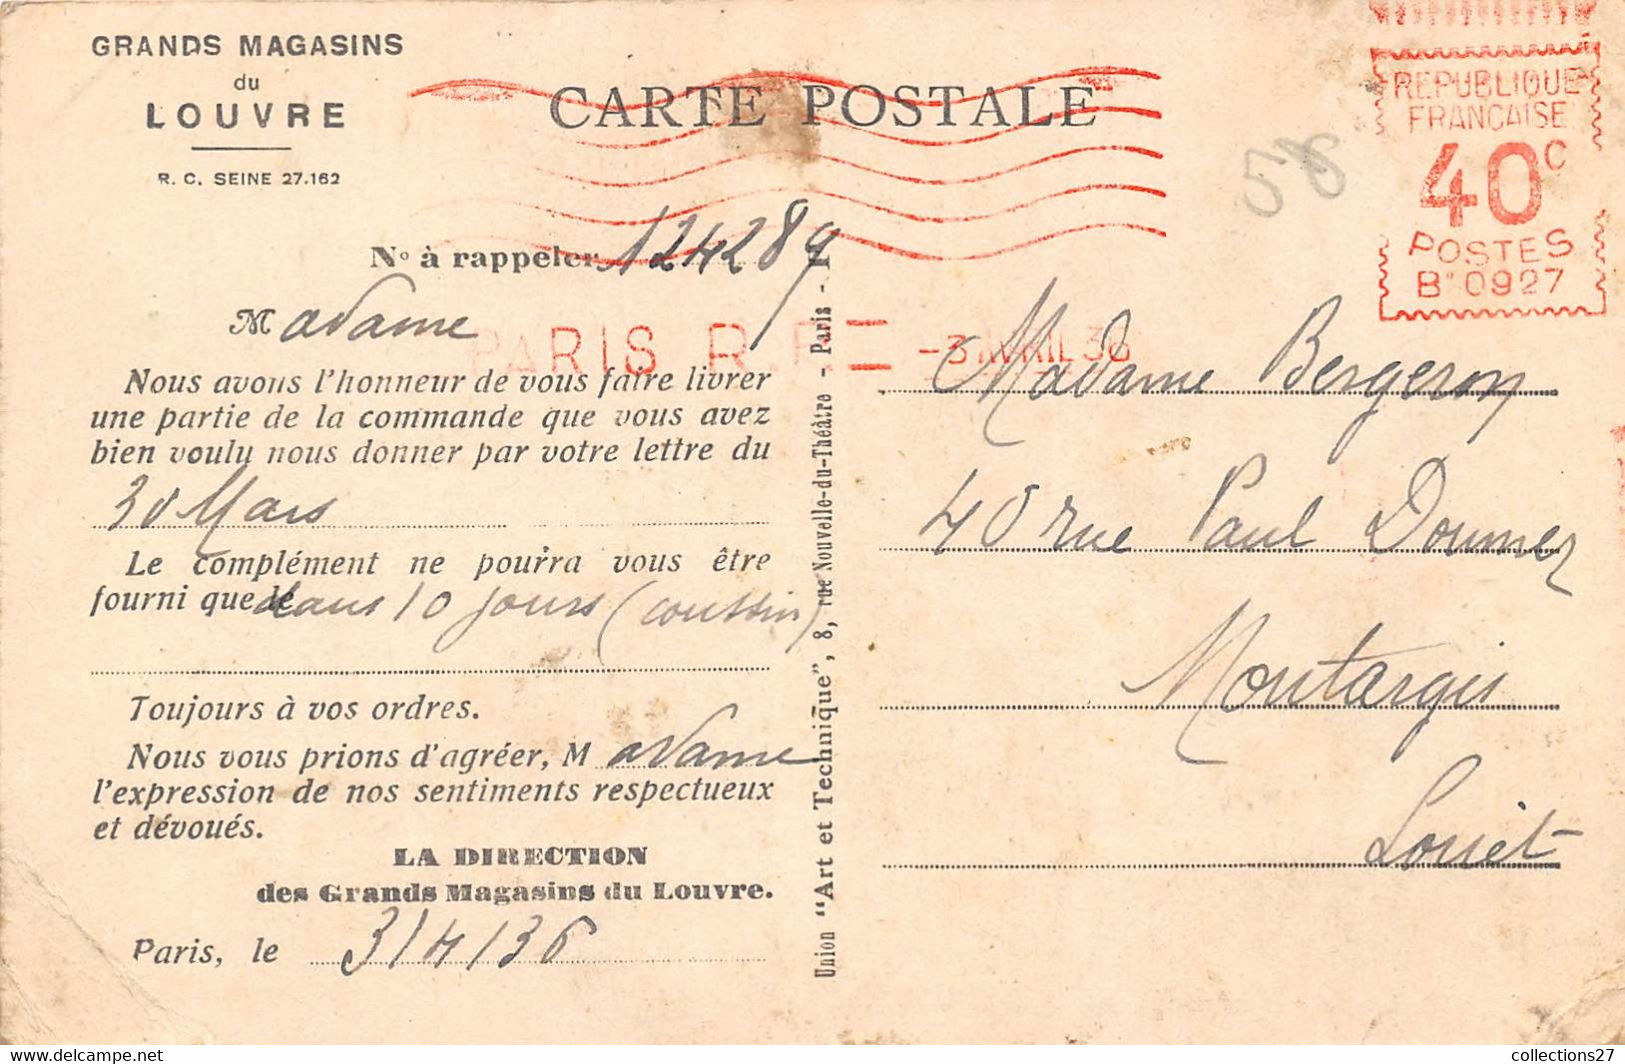 GRANDS MAGASINS
du
LOUVRE
R. C. SEINE 27.162
CARTE POSTALE
58
REPUBLIQUE
FRANCAISE
40 C
POSTES
B 0927
N° à rappeler 124289
Madame
PARIS R.P. -3 AVRIL 36
Nous avons l'honneur de vous faire livrer
une partie de la commande que vous avez
bien voulu nous donner par votre lettre du
30 Mars
Le complément ne pourra vous être
fourni que dans 10 jours (coussin)
Toujours à vos ordres.
Nous vous prions d'agréer, Madame
l'expression de nos sentiments respectueux
et dévoués.
LA DIRECTION
des Grands Magasins du Louvre.
Paris, le 3/4/36
Union "Art et Technique", 8, rue Nouvelle-du-Théâtre - Paris -
Madame Bergeron
40 rue Paul Doumer
Montargis
Loiret
collections27